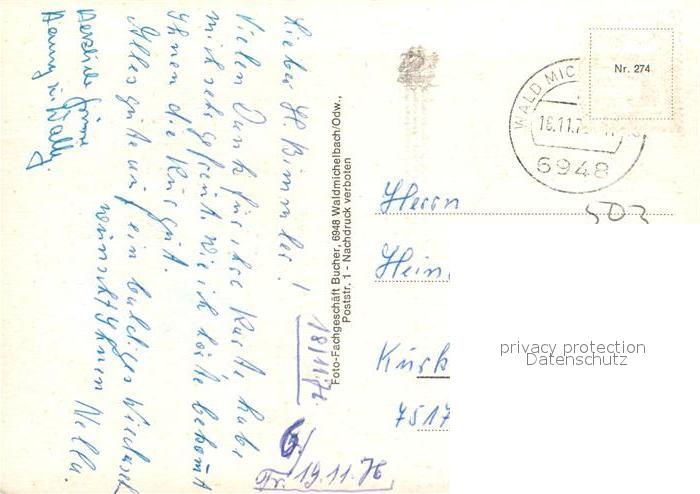 Lieber H Bimmler!
Vielen Dank für ihre Karte habe
mich sehr gefreut. Wie ich hörte bekommt
Ihnen die Kur gut.
Alles gute auf ein baldiges Wiedersehn
wünscht Ihnen Nella.
Herzliche Grüsse
Hanny u. Wally.
18/11.76.
6/
Fr. 19.11.76
Foto-Fachgeschäft Bucher, 6948 Waldmichelbach/Odw.,
Poststr. 1 - Nachdruck verboten
Nr. 274
WALD MIC
16.11.7
6948
503
Herrn
Hein
Kurk
7517
privacy protection
Datenschutz